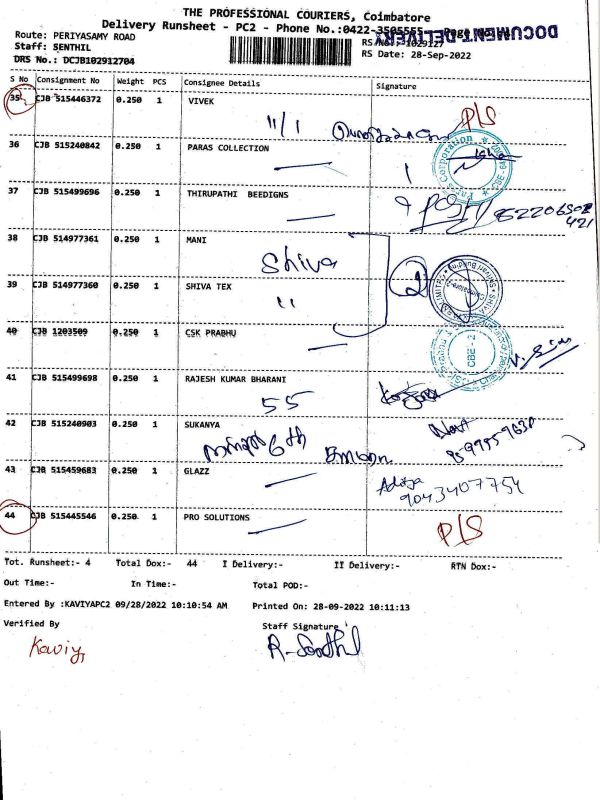 THE PROFESSIONAL COURIERS, Coimbatore
Delivery Runsheet - PC2 - Phone No.:0422-3505555
DOCUMENT DELIVERY
Route: PERIYASAMY ROAD
Staff: SENTHIL
RS No.: 1029127
DRS No.: DCJB102912704
RS Date: 28-Sep-2022
S No Consignment No Weight PCS Consignee Details Signature
35 CJB 515446372 0.250 1 VIVEK
11/1 P/S
36 CJB 515240842 0.250 1 PARAS COLLECTION
37 CJB 515499696 0.250 1 THIRUPATHI BEEDIGNS
38 CJB 514977361 0.250 1 MANI
Shiva 2
39 CJB 514977360 0.250 1 SHIVA TEX
"
40 CJB 1203509 0.250 1 CSK PRABHU
CBE - 2
41 CJB 515499698 0.250 1 RAJESH KUMAR BHARANI
55
42 CJB 515240903 0.250 1 SUKANYA
6th
43 CJB 515459683 0.250 1 GLAZZ
Aditya
9043407754
44 CJB 515445546 0.250 1 PRO SOLUTIONS
P/S
Tot. Runsheet:- 4 Total Dox:- 44 I Delivery:- II Delivery:- RTN Dox:-
Out Time:- In Time:- Total POD:-
Entered By :KAVIYAPC2 09/28/2022 10:10:54 AM Printed On: 28-09-2022 10:11:13
Verified By Staff Signature
Kaviya R-Senthil